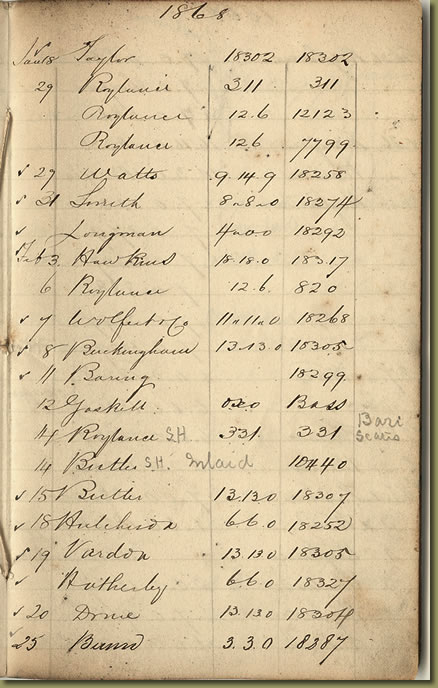 1868
Jan 8 Taylor 18302 18302
29 Roylance 311 311
Roylance 12.6 12123
Roylance 12 6 7799
✓ 29 Watts 9.14.9 18258
✓ 31 Smith 8"8"0 18274
✓ Longman 4"0.0 18292
Feb 3. Hawkins 18.18.0 18317
6 Roylance 12.6. 820
✓ 7 Wolfert & Co 11"11"0 18268
✓ 8 Buckingham 13.13.0 18305
✓ 11 Baring 18299
12 Gaskell. Bass
14 Roylance S.H 331. 331 Bari
14 Butler S.H. Inlaid 10440
✓ 15 Butler 13.13.0 18307
✓ 18 Hutchison 6.6.0 18252
✓ 19 Vardon 13.13.0 18305
✓ Hotherby 6.6.0 18327
✓ 20 13.13.0 18304
✓ 25 3.3.0 18287